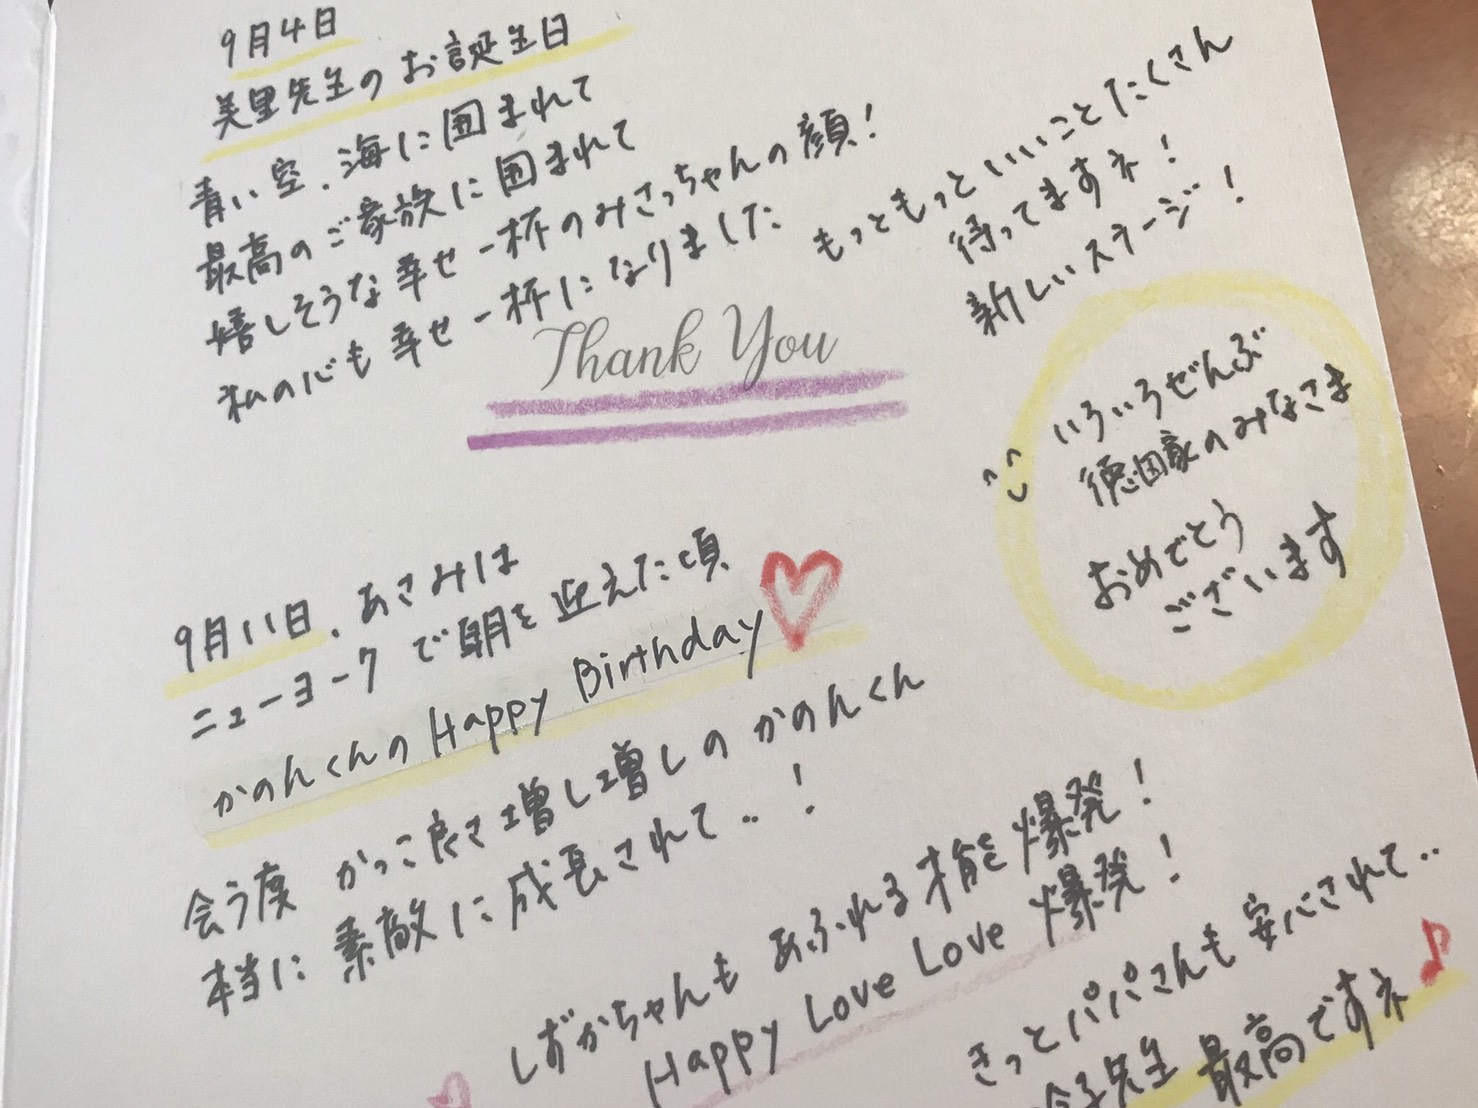 9月4日
美里先生のお誕生日
青い空、海に囲まれて
最高のご家族に囲まれて
嬉しそうな幸せ一杯のみさっちゃんの顔!
私の心も幸せ一杯になりました
Thank You
もっともっといいことたくさん
待ってますネ!
新しいステージ!
いろいろぜんぶ
徳田家のみなさま
おめでとう
ございます
9月11日、あさみは
ニューヨークで朝を迎えた頃
かのんくんのHappy Birthday
会う度 かっこ良さ増し増しのかのんくん
本当に素敵に成長されて..!
しずかちゃんもあふれる才能爆発!
Happy Love Love 爆発!
きっとパパさんも安心されて..
子先生 最高ですネ♪